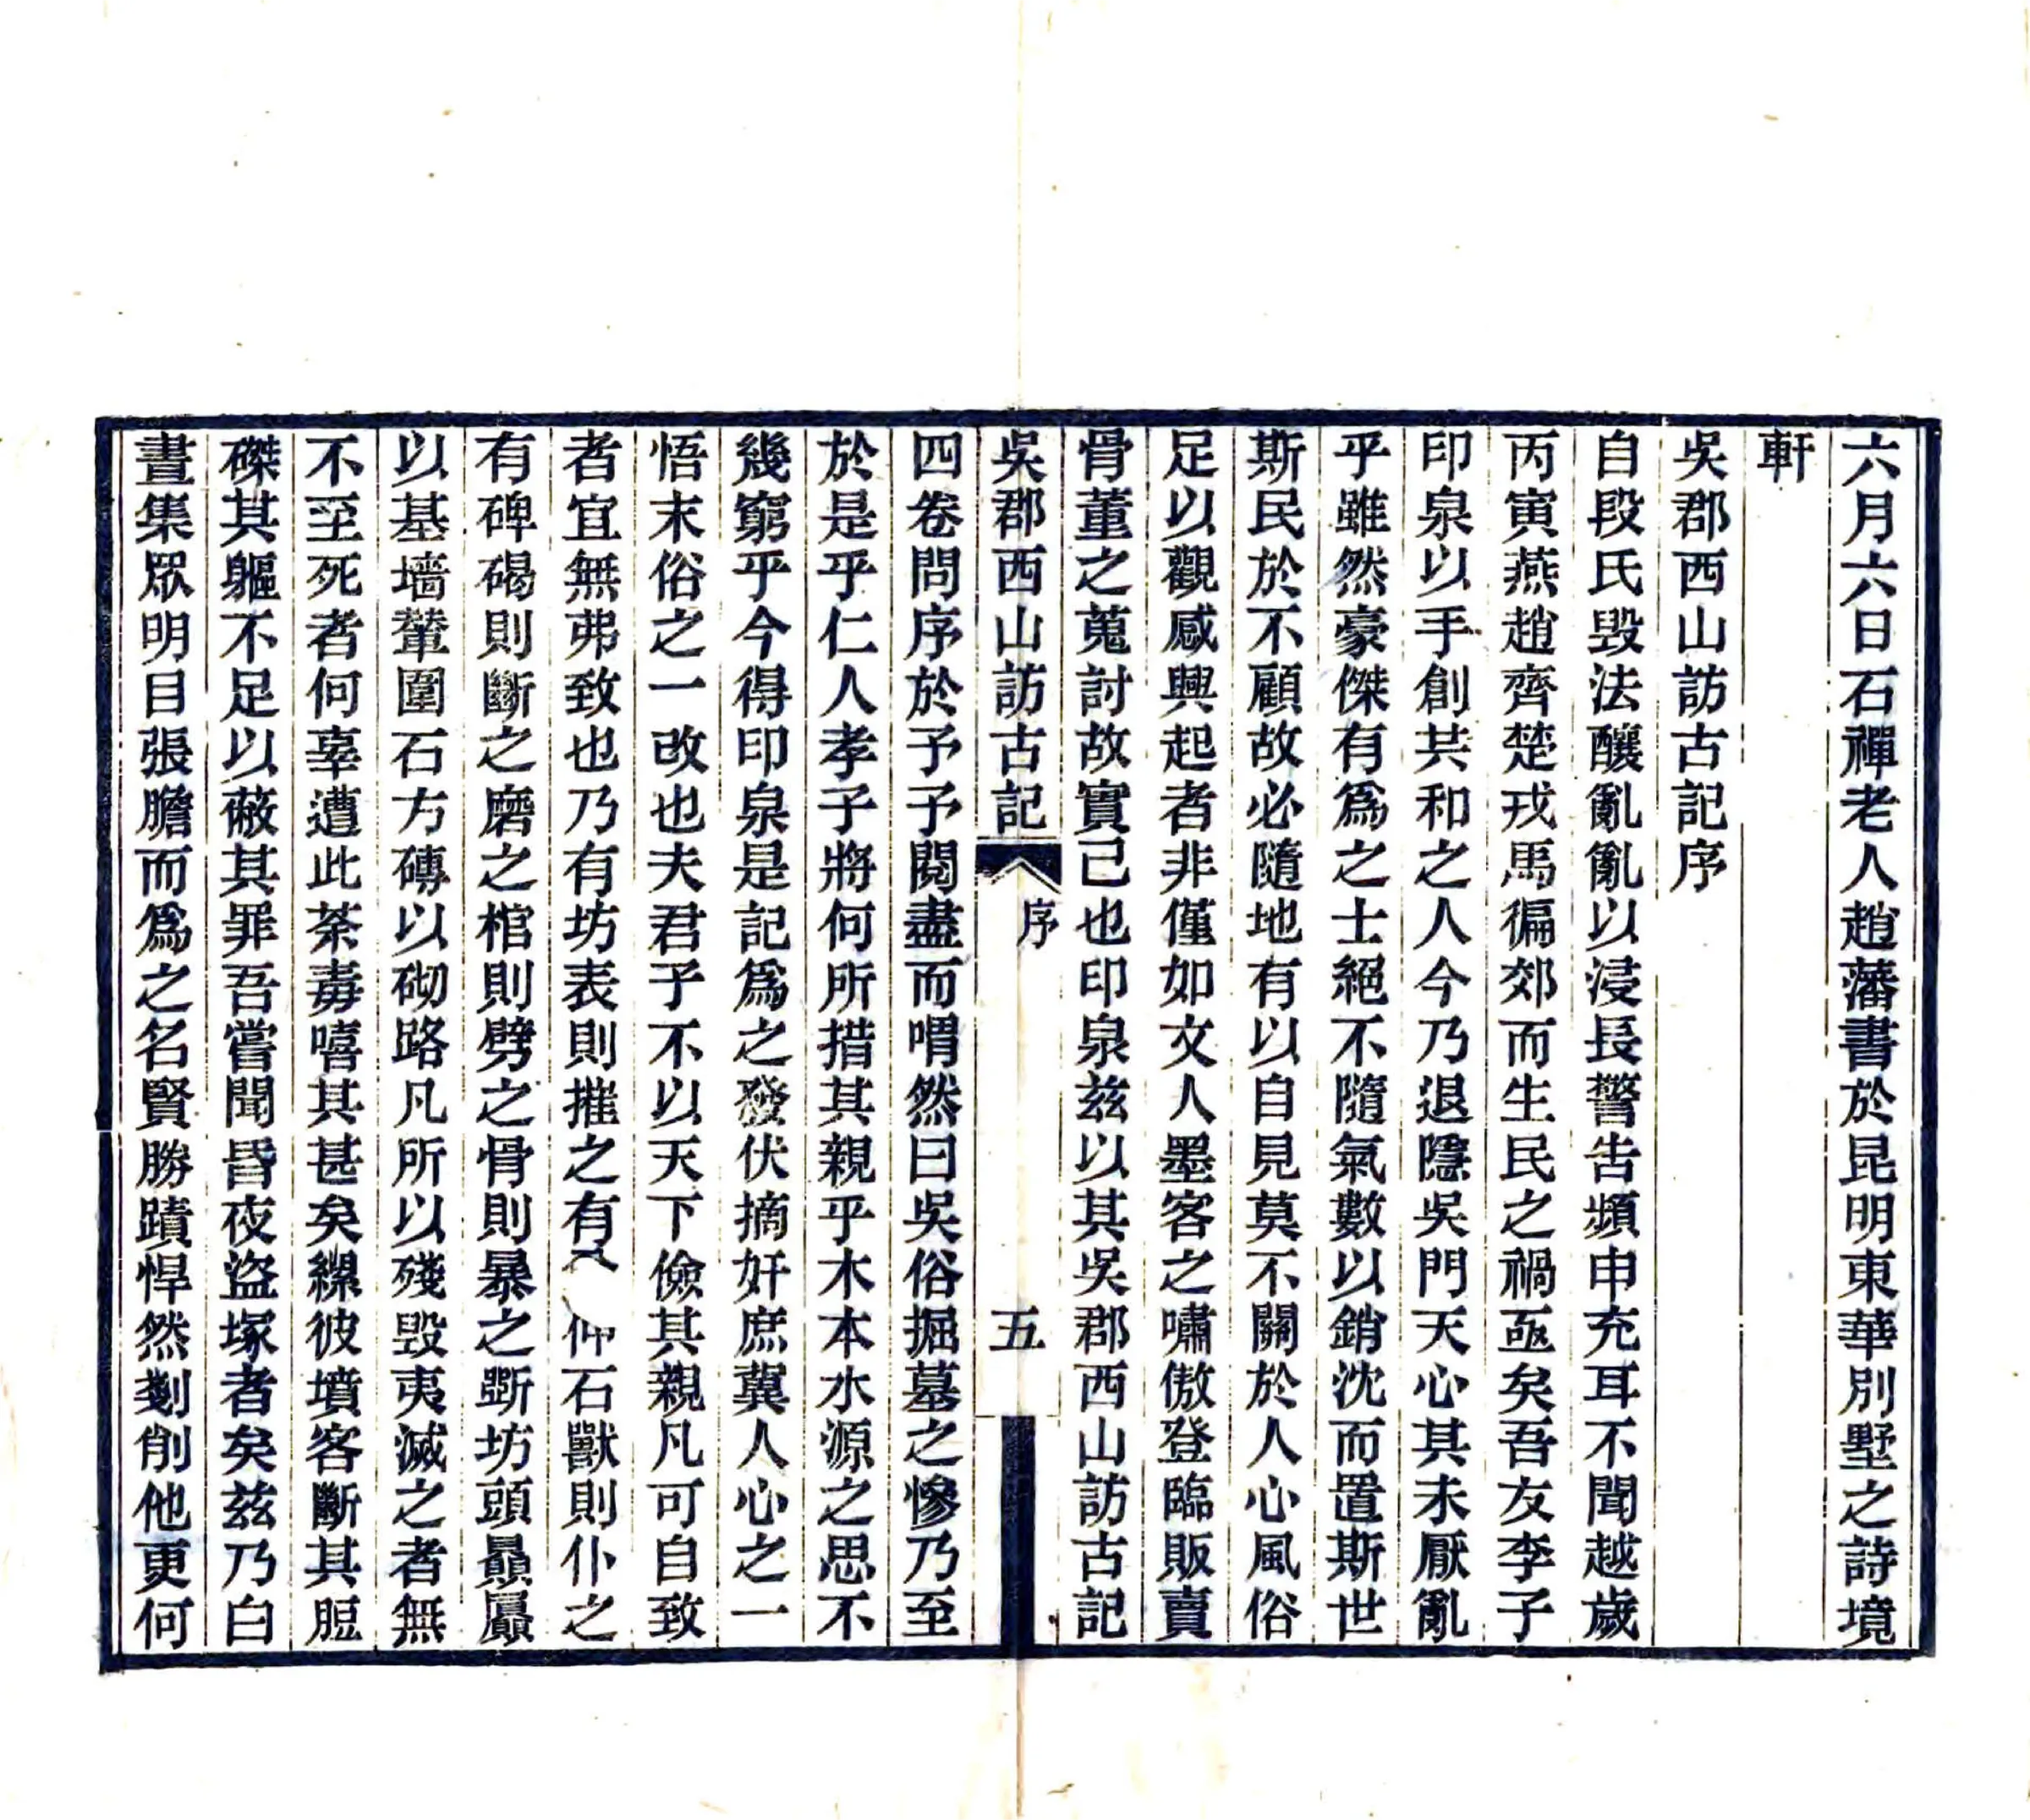 六月六日石禪老人趙藩書於昆明東華別墅之詩境
軒
吳郡西山訪古記序
自段氏毀法釀亂亂以浸長警告頻申充耳不聞越歲
丙寅燕趙齊楚戎馬徧郊而生民之禍亟矣吾友李子
印泉以手創共和之人今乃退隱吳門天心其未厭亂
乎雖然豪傑有爲之士絕不隨氣數以銷沈而置斯世
斯民於不顧故必隨地有以自見莫不關於人心風俗
足以觀感興起者非僅如文人墨客之嘯傲登臨販賣
骨董之蒐討故實已也印泉茲以其吳郡西山訪古記
吳郡西山訪古記 序 五
四卷問序於予予閱盡而喟然曰吳俗掘墓之慘乃至
於是乎仁人孝子將何所措其親乎木本水源之思不
幾窮乎今得印泉是記爲之發伏摘奸庶冀人心之一
悟末俗之一改也夫君子不以天下儉其親凡可自致
者宜無弗致也乃有坊表則摧之有仲石獸則仆之
有碑碣則斷之磨之棺則劈之骨則暴之斲坊頭贔屭
以基墻輦圍石方磚以砌路凡所以殘毀夷滅之者無
不至死者何辜遭此荼毒嘻其甚矣縲彼墳客斷其脰
磔其軀不足以蔽其罪吾嘗聞昏夜盜塚者矣茲乃白
晝集眾明目張膽而爲之名賢勝蹟悍然剗削他更何